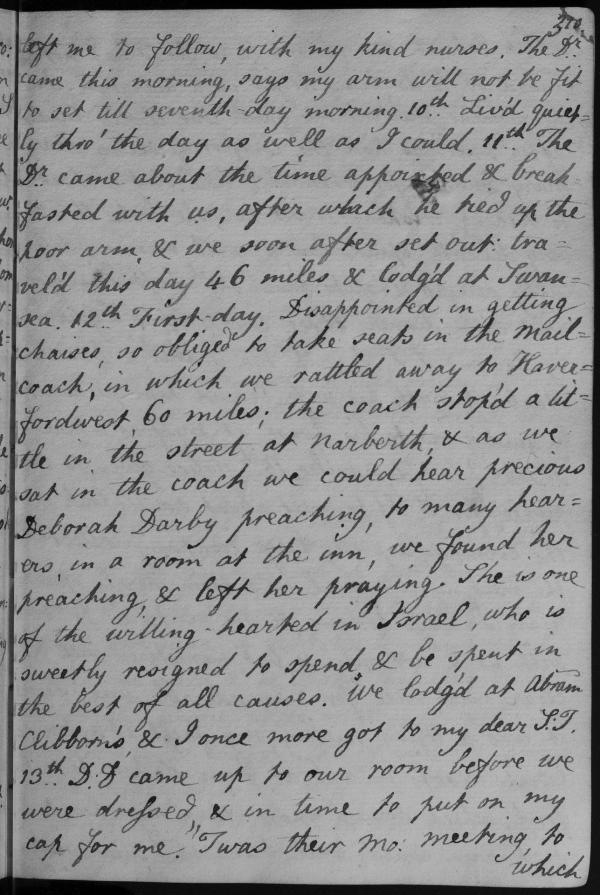 370.
left me to follow, with my kind nurses. The Dr.
came this morning, says my arm will not be fit
to set till seventh-day morning. 10th. Liv'd quiet=
ly thro' the day as well as I could. 11th. The
Dr. came about the time appointed & break-
fasted with us, after which he tied up the
poor arm, & we soon after set out: tra=
vel'd this day 46 miles & lodg'd at Swan=
sea. 12th. First-day. Disappointed in getting
chaises, so obliged to take seats in the mail=
coach, in which we rattled away to Haver=
fordwest, 60 miles; the coach stop'd a lit=
tle in the street at Narberth, & as we
sat in the coach we could hear precious
Deborah Darby preaching, to many hear=
ers, in a room at the inn, we found her
preaching, & left her praying. She is one
of the willing-hearted in Israel, who is
sweetly resigned to spend, & be spent in
the best of all causes. We lodg'd at Abram
Clibborn's, & I once more got to my dear S.T.
13th. D:D came up to our room before we
were dressed, & in time to put on my
cap for me. 'Twas their mo: meeting, to
which